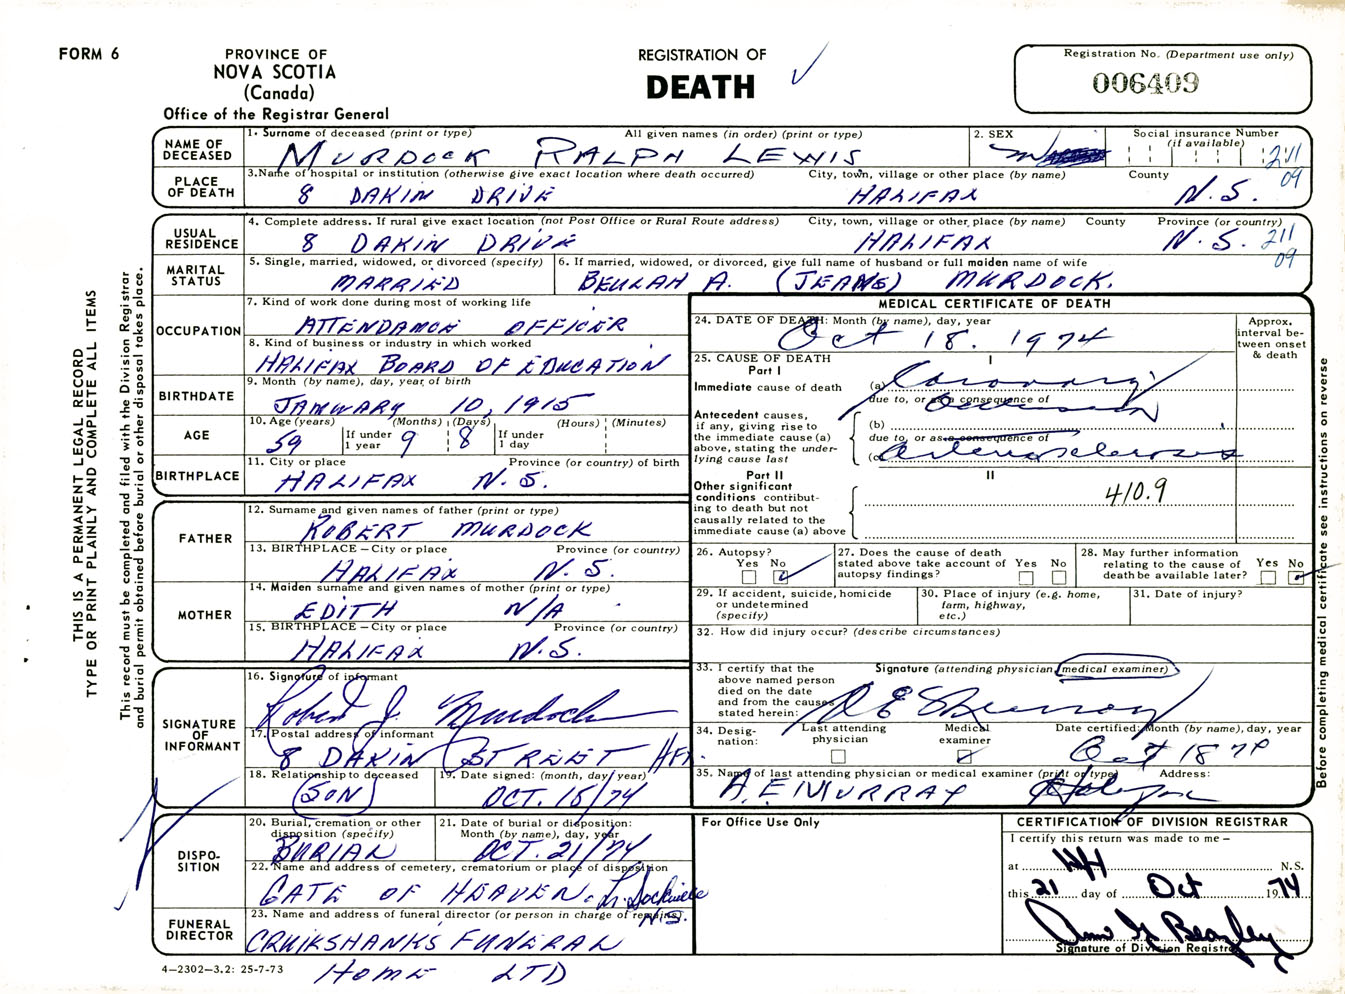 FORM 6
PROVINCE OF
NOVA SCOTIA
(Canada)
Office of the Registrar General
REGISTRATION OF
DEATH
Registration No. (Department use only)
006409
NAME OF DECEASED
1. Surname of deceased (print or type) All given names (in order) (print or type)
MURDOCK RALPH LEWIS
2. SEX
M
Social insurance Number
(if available)
211
09
PLACE OF DEATH
3. Name of hospital or institution (otherwise give exact location where death occurred) City, town, village or other place (by name) County
8 DAKIN DRIVE HALIFAX N.S.
USUAL RESIDENCE
4. Complete address. If rural give exact location (not Post Office or Rural Route address) City, town, village or other place (by name) County Province (or country)
8 DAKIN DRIVE HALIFAX N.S. 211
09
MARITAL STATUS
5. Single, married, widowed, or divorced (specify)
MARRIED
6. If married, widowed, or divorced, give full name of husband or full maiden name of wife
BEULAH A. (JEANS) MURDOCK.
OCCUPATION
7. Kind of work done during most of working life
ATTENDANCE OFFICER
8. Kind of business or industry in which worked
HALIFAX BOARD OF EDUCATION
BIRTHDATE
9. Month (by name), day, year of birth
JANUARY 10, 1915
AGE
10. Age (years) (Months) (Days) (Hours) (Minutes)
59 If under 1 year 9 8 If under 1 day
BIRTHPLACE
11. City or place Province (or country) of birth
HALIFAX N.S.
FATHER
12. Surname and given names of father (print or type)
ROBERT MURDOCK
13. BIRTHPLACE – City or place Province (or country)
HALIFAX N.S.
MOTHER
14. Maiden surname and given names of mother (print or type)
EDITH N/A
15. BIRTHPLACE – City or place Province (or country)
HALIFAX N.S.
SIGNATURE OF INFORMANT
16. Signature of informant
Robert J. Murdock
17. Postal address of informant
8 DAKIN STREET HFX.
18. Relationship to deceased
(SON)
19. Date signed: (month, day, year)
OCT. 18/74
DISPOSITION
20. Burial, cremation or other disposition (specify)
BURIAL
21. Date of burial or disposition:
Month (by name), day, year
OCT. 21/74
22. Name and address of cemetery, crematorium or place of disposition
GATE OF HEAVEN. L. Sackville
N.S.
FUNERAL DIRECTOR
23. Name and address of funeral director (or person in charge of remains)
CRUIKSHANKS FUNERAL
HOME LTD
4–2302–3.2: 25-7-73
MEDICAL CERTIFICATE OF DEATH
24. DATE OF DEATH: Month (by name), day, year
Oct 18. 1974
Approx. interval between onset & death
25. CAUSE OF DEATH I
Part I
Immediate cause of death (a) Coronary
due to, or as a consequence of
Occlusion
Antecedent causes, if any, giving rise to the immediate cause (a) above, stating the underlying cause last
(b)
due to, or as a consequence of
(c) arteriosclerosis
Part II II
Other significant conditions contributing to death but not causally related to the immediate cause (a) above
410.9
26. Autopsy?
Yes No
27. Does the cause of death stated above take account of autopsy findings? Yes No
28. May further information relating to the cause of death be available later? Yes No
29. If accident, suicide, homicide or undetermined (specify)
30. Place of injury (e.g. home, farm, highway, etc.)
31. Date of injury?
32. How did injury occur? (describe circumstances)
33. I certify that the above named person died on the date and from the causes stated herein:
Signature (attending physician, medical examiner)
A E Murray
34. Designation:
Last attending physician
Medical examiner
Date certified: Month (by name), day, year
Oct 18 74
35. Name of last attending physician or medical examiner (print or type) Address:
A.E. MURRAY Halifax
For Office Use Only
CERTIFICATION OF DIVISION REGISTRAR
I certify this return was made to me –
at Hfx N.S.
this 21 day of Oct 1974
Signature of Division Registrar
THIS IS A PERMANENT LEGAL RECORD
TYPE OR PRINT PLAINLY AND COMPLETE ALL ITEMS
This record must be completed and filed with the Division Registrar
and burial permit obtained before burial or other disposal takes place.
Before completing medical certificate see instructions on reverse